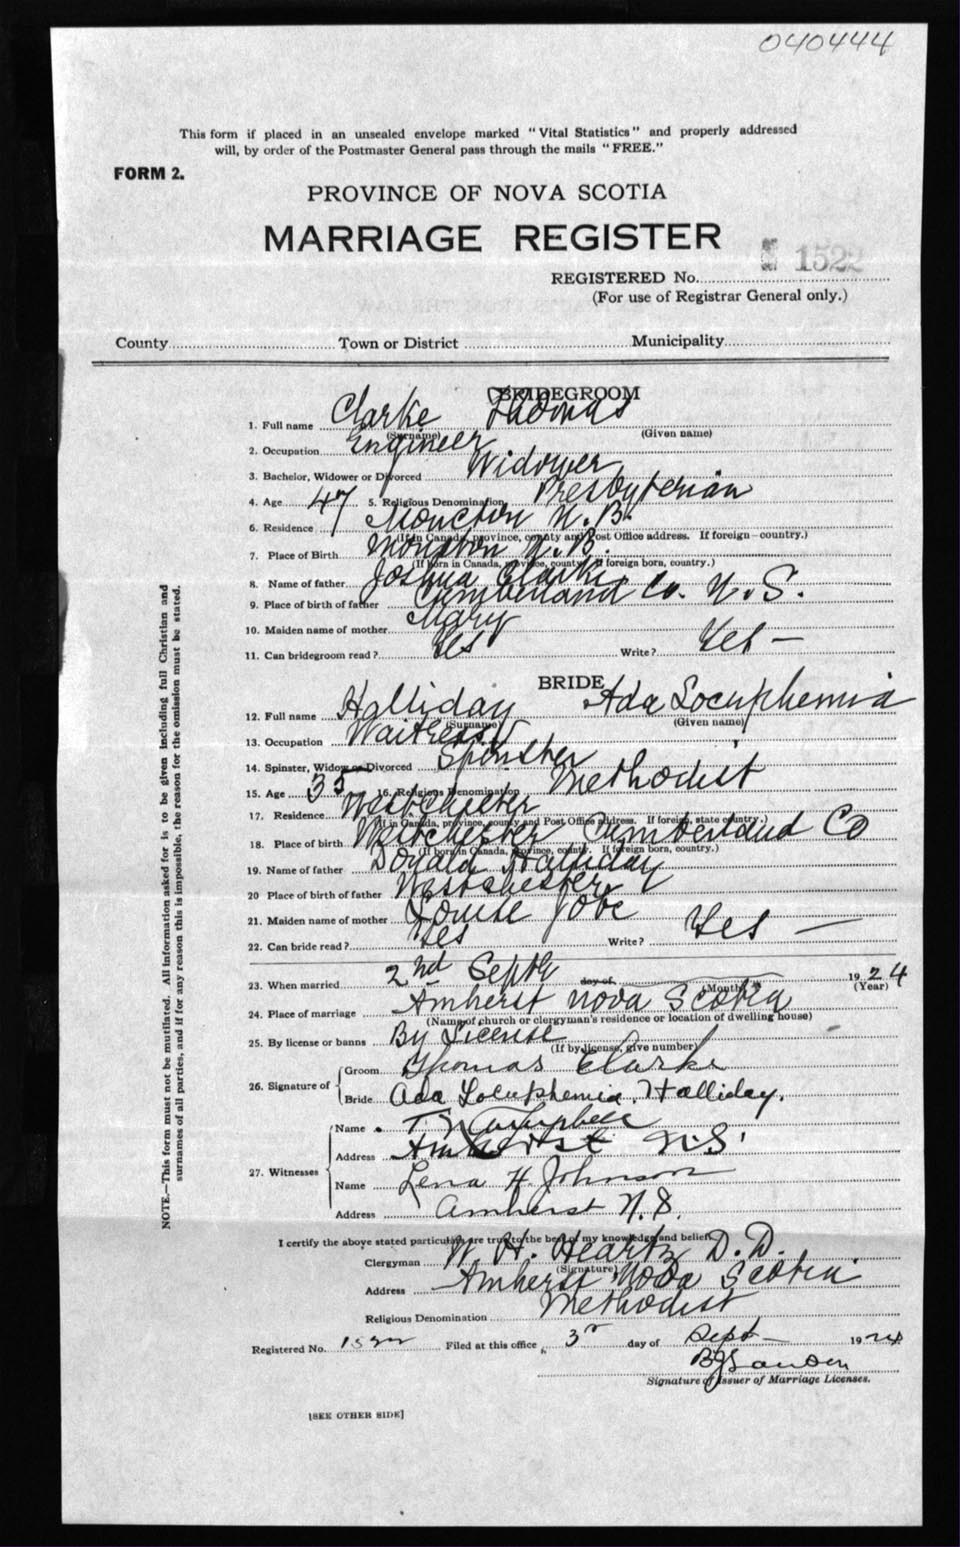 040444
This form if placed in an unsealed envelope marked "Vital Statistics" and properly addressed
will, by order of the Postmaster General pass through the mails "FREE."
FORM 2.
PROVINCE OF NOVA SCOTIA
MARRIAGE REGISTER
1522
REGISTERED No.
(For use of Registrar General only.)
County Town or District Municipality
BRIDEGROOM
1. Full name Clarke Thomas
(Surname) (Given name)
2. Occupation Engineer
3. Bachelor, Widower or Divorced Widower
4. Age 47 5. Religious Denomination Presbyterian
6. Residence Moncton N.B.
(If in Canada, province, county and Post Office address. If foreign—country.)
7. Place of Birth Moncton N.B.
(If born in Canada, province, county. If foreign born, country.)
8. Name of father Joshua Clarke
9. Place of birth of father Cumberland Co. N.S.
10. Maiden name of mother Mary
11. Can bridegroom read? Yes Write? Yes —
BRIDE
12. Full name Halliday Ada Locuphemia
(Surname) (Given name)
13. Occupation Waitress
14. Spinster, Widow or Divorced Spinster
15. Age 35 16. Religious Denomination Methodist
17. Residence Westchester
(If in Canada, province, county and Post Office address. If foreign, state country.)
18. Place of birth Westchester Cumberland Co
(If born in Canada, province, county. If foreign born, country.)
19. Name of father Donald Halliday
20 Place of birth of father Westchester
21. Maiden name of mother Louise Jobe
22. Can bride read? Yes Write? Yes —
23. When married 2nd Septbr day of 1924
(Month) (Year)
24. Place of marriage Amherst Nova Scotia
(Name of church or clergyman's residence or location of dwelling house)
25. By license or banns By License
(If by license, give number)
26. Signature of
Groom Thomas Clarke
Bride Ada Locuphemia Halliday.
27. Witnesses
Name Campbell
Address Amherst N.S.
Name Lena H. Johnson
Address Amherst N.S.
I certify the above stated particulars are true to the best of my knowledge and belief.
Clergyman W. H. Heartz D.D.
(Signature)
Address Amherst Nova Scotia
Religious Denomination Methodist
Registered No. 1522 Filed at this office, 3r day of Sept 1924
Signature of Issuer of Marriage Licenses.
[SEE OTHER SIDE]
NOTE.—This form must not be mutilated. All information asked for is to be given including full Christian and
surnames of all parties, and if for any reason this is impossible, the reason for the omission must be stated.